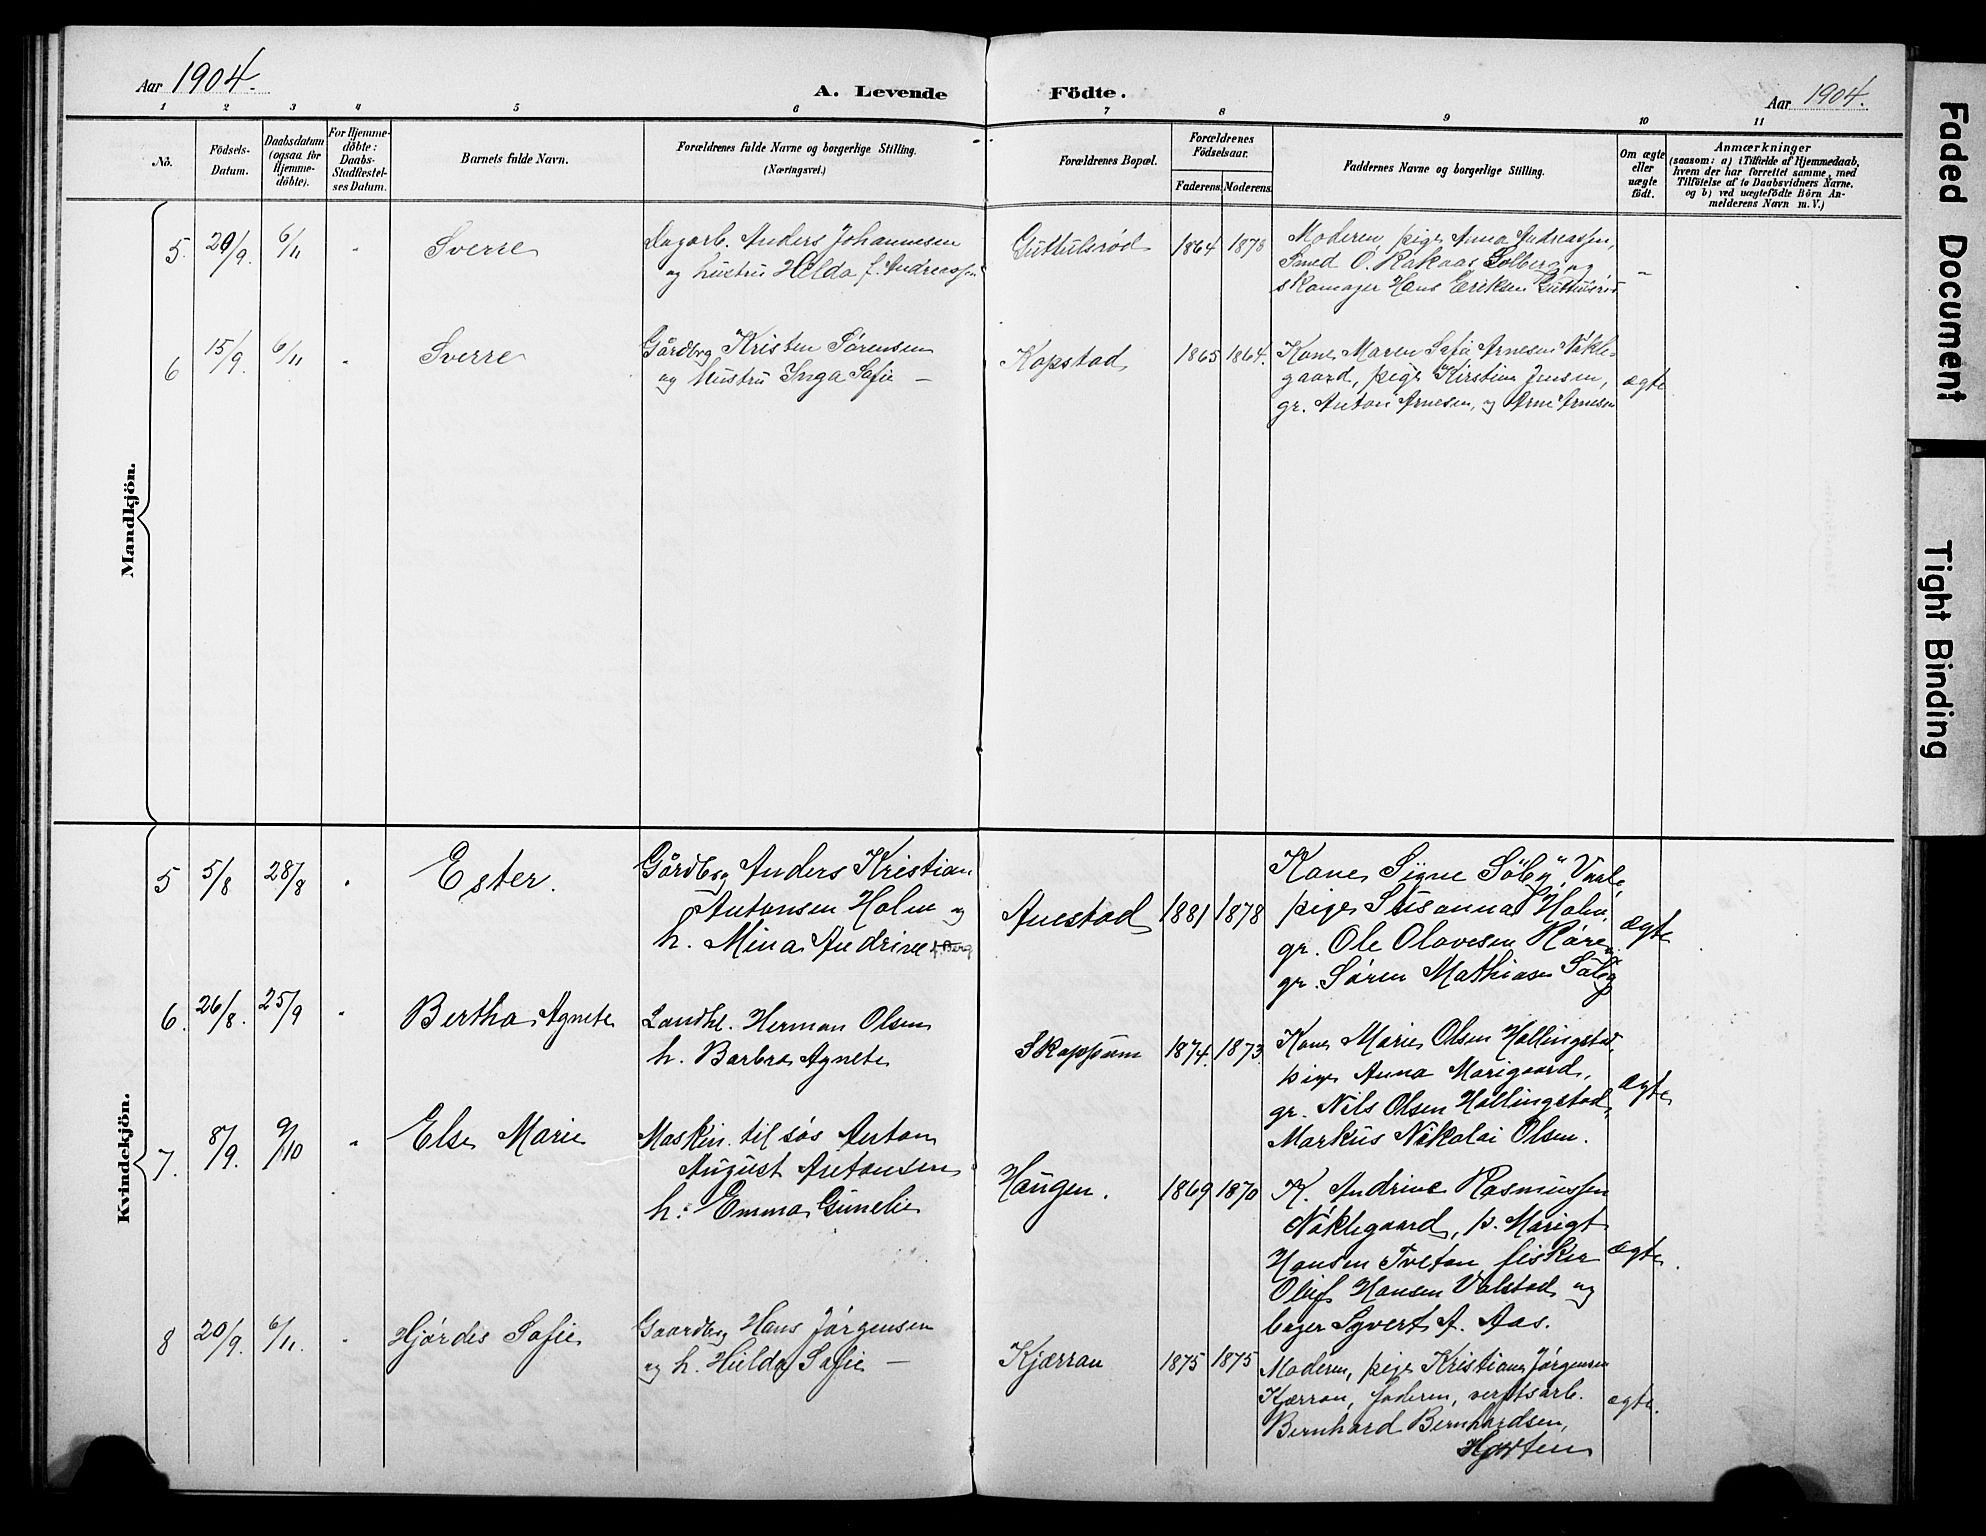 Aar 1904.
A. Levende Födte.
Aar 1904.
1 2 3 4 5 6 7 8 9 10 11
No.
Födsels-
Datum.
Daabsdatum
(ogsaa for
Hjemme-
döbte).
For Hjemme-
döbte:
Daabs-
Stadfæstel-
ses Datum.
Barnets fulde Navn.
Forældrenes fulde Navne og borgerlige Stilling.
(Næringsvei.)
Forældrenes Bopæl.
Forældrenes
Födselsaar.
Faderens. Moderens.
Faddernes Navne og borgerlige Stilling.
Om ægte
eller
uægte
födt.
Anmærkninger
(saasom: a) i Tilfælde af Hjemmedaab,
hvem der har forrettet samme, med
Tilföielse af to Daabsvidners Navne.
og b) ved uægtefödte Börn An-
melderens Navn m. V.)
Mandkjön.
5. 29/9. 6/11 " Sverre
Dagarb. Anders Johannesen
og hustru Hilda f. Andreassen
Guttulsrød 1864 1873
Moderen, pige Anna Andreassen,
Smed O. Rakaas Solberg og
skomager Hans Eriksen Guttulsrød
"
6 15/9. 6/11 " Sverre
Gårdbrg Kristen Sørensen
og hustru Inga Sofie —
Kopstad 1865 1864.
Kone Maren Sofie Arnesen Nøkle-
gaard, pige Kirstine Jensen,
gr. Anton Arnesen, og Arne Arnesen
ægte
Kvindekjön.
5 5/8 28/8 " Ester.
Gårdbrg Anders Kristian
Antonsen Holm og
h. Mina Andrine f. Berg
Anestad 1881 1878
Kone Signe Söby, Vaale,
pige Susanna Holm,
gr. Ole Olavesen Røre,
gr. Søren Mathiasen Söby
ægte
6. 26/8. 25/9 " Bertha Agnete
Landhl. Herman Olsen
h. Barbra Agnete
Skoppum 1874. 1873.
Kone Marie Olsen Hollingstad,
pige Anna Marigaard,
gr. Nils Olsen Hollingstad,
Markus Nikolai Olsen.
ægte
7. 8/9. 9/10 " Else Marie
Maskin. til søs Anton
August Antonsen
h: Emma Gunelie
Haugen. 1869 1870
K. Andrine Rasmussen
Nöklegaard, p. Marigt
Hansen Tveten, fisker
Oluf Hansen Valstad og
bager Syvert A. Aas.
ægte.
8 20/9. 6/11. " Hjørdis Sofie
Gaardbrg Hans Jørgensen
og h. Hilda Sofie —
Kjærran 1875 1875
Moderen, pige Kristiane Jørgensen
Kjærran, faderen, verftsarb.
Bernhard Bernhardsen,
Horten
ægte.
Faded Document
Tight Binding